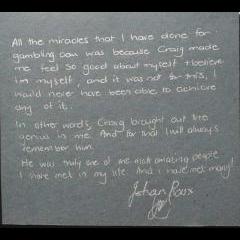 All the miracles that I have done for
gambling was because Craig made
me feel so good about myself + believe
in myself, and it was not for this, I
would never have been able to achieve
any of it.
In other words, Craig brought out the
genius in me. And for that I will always
remember him.
He was truly one of the most amazing people
I have met in my life. And I have met many!
Johan